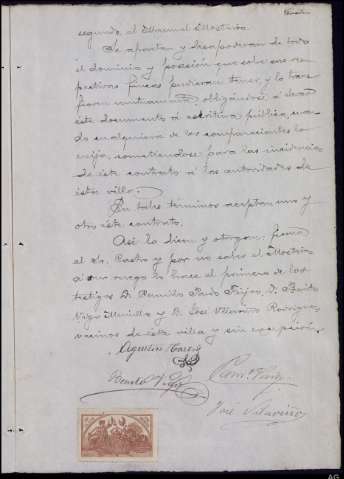 segundo al Manuel Mosteiro.
Se apartan y desapoderan de todo
el dominio y posesión que sobre sus res-
pectivas fincas pudieran tener, y lo trans-
fieren mutuamente obligándose á elevar
este documento á escritura pública, cuan-
do cualquiera de los comparecientes lo
exija, sometiéndose para las incidencias
de este contrato á las autoridades de
esta villa.
En tales términos aceptan uno y
otro este contrato.
Así lo dicen y otorgan, firma
el Sr. Castro y por no saber el Mosteiro
á su ruego lo hace el primero de los
testigos D. Ramiro Pardo D. Benito
Vigo y D. José Vilariño Rodríguez,
vecinos de esta villa y sin excepción.
Agustín Castro
Benito Vigo Ram. Pardo
José Vilariño